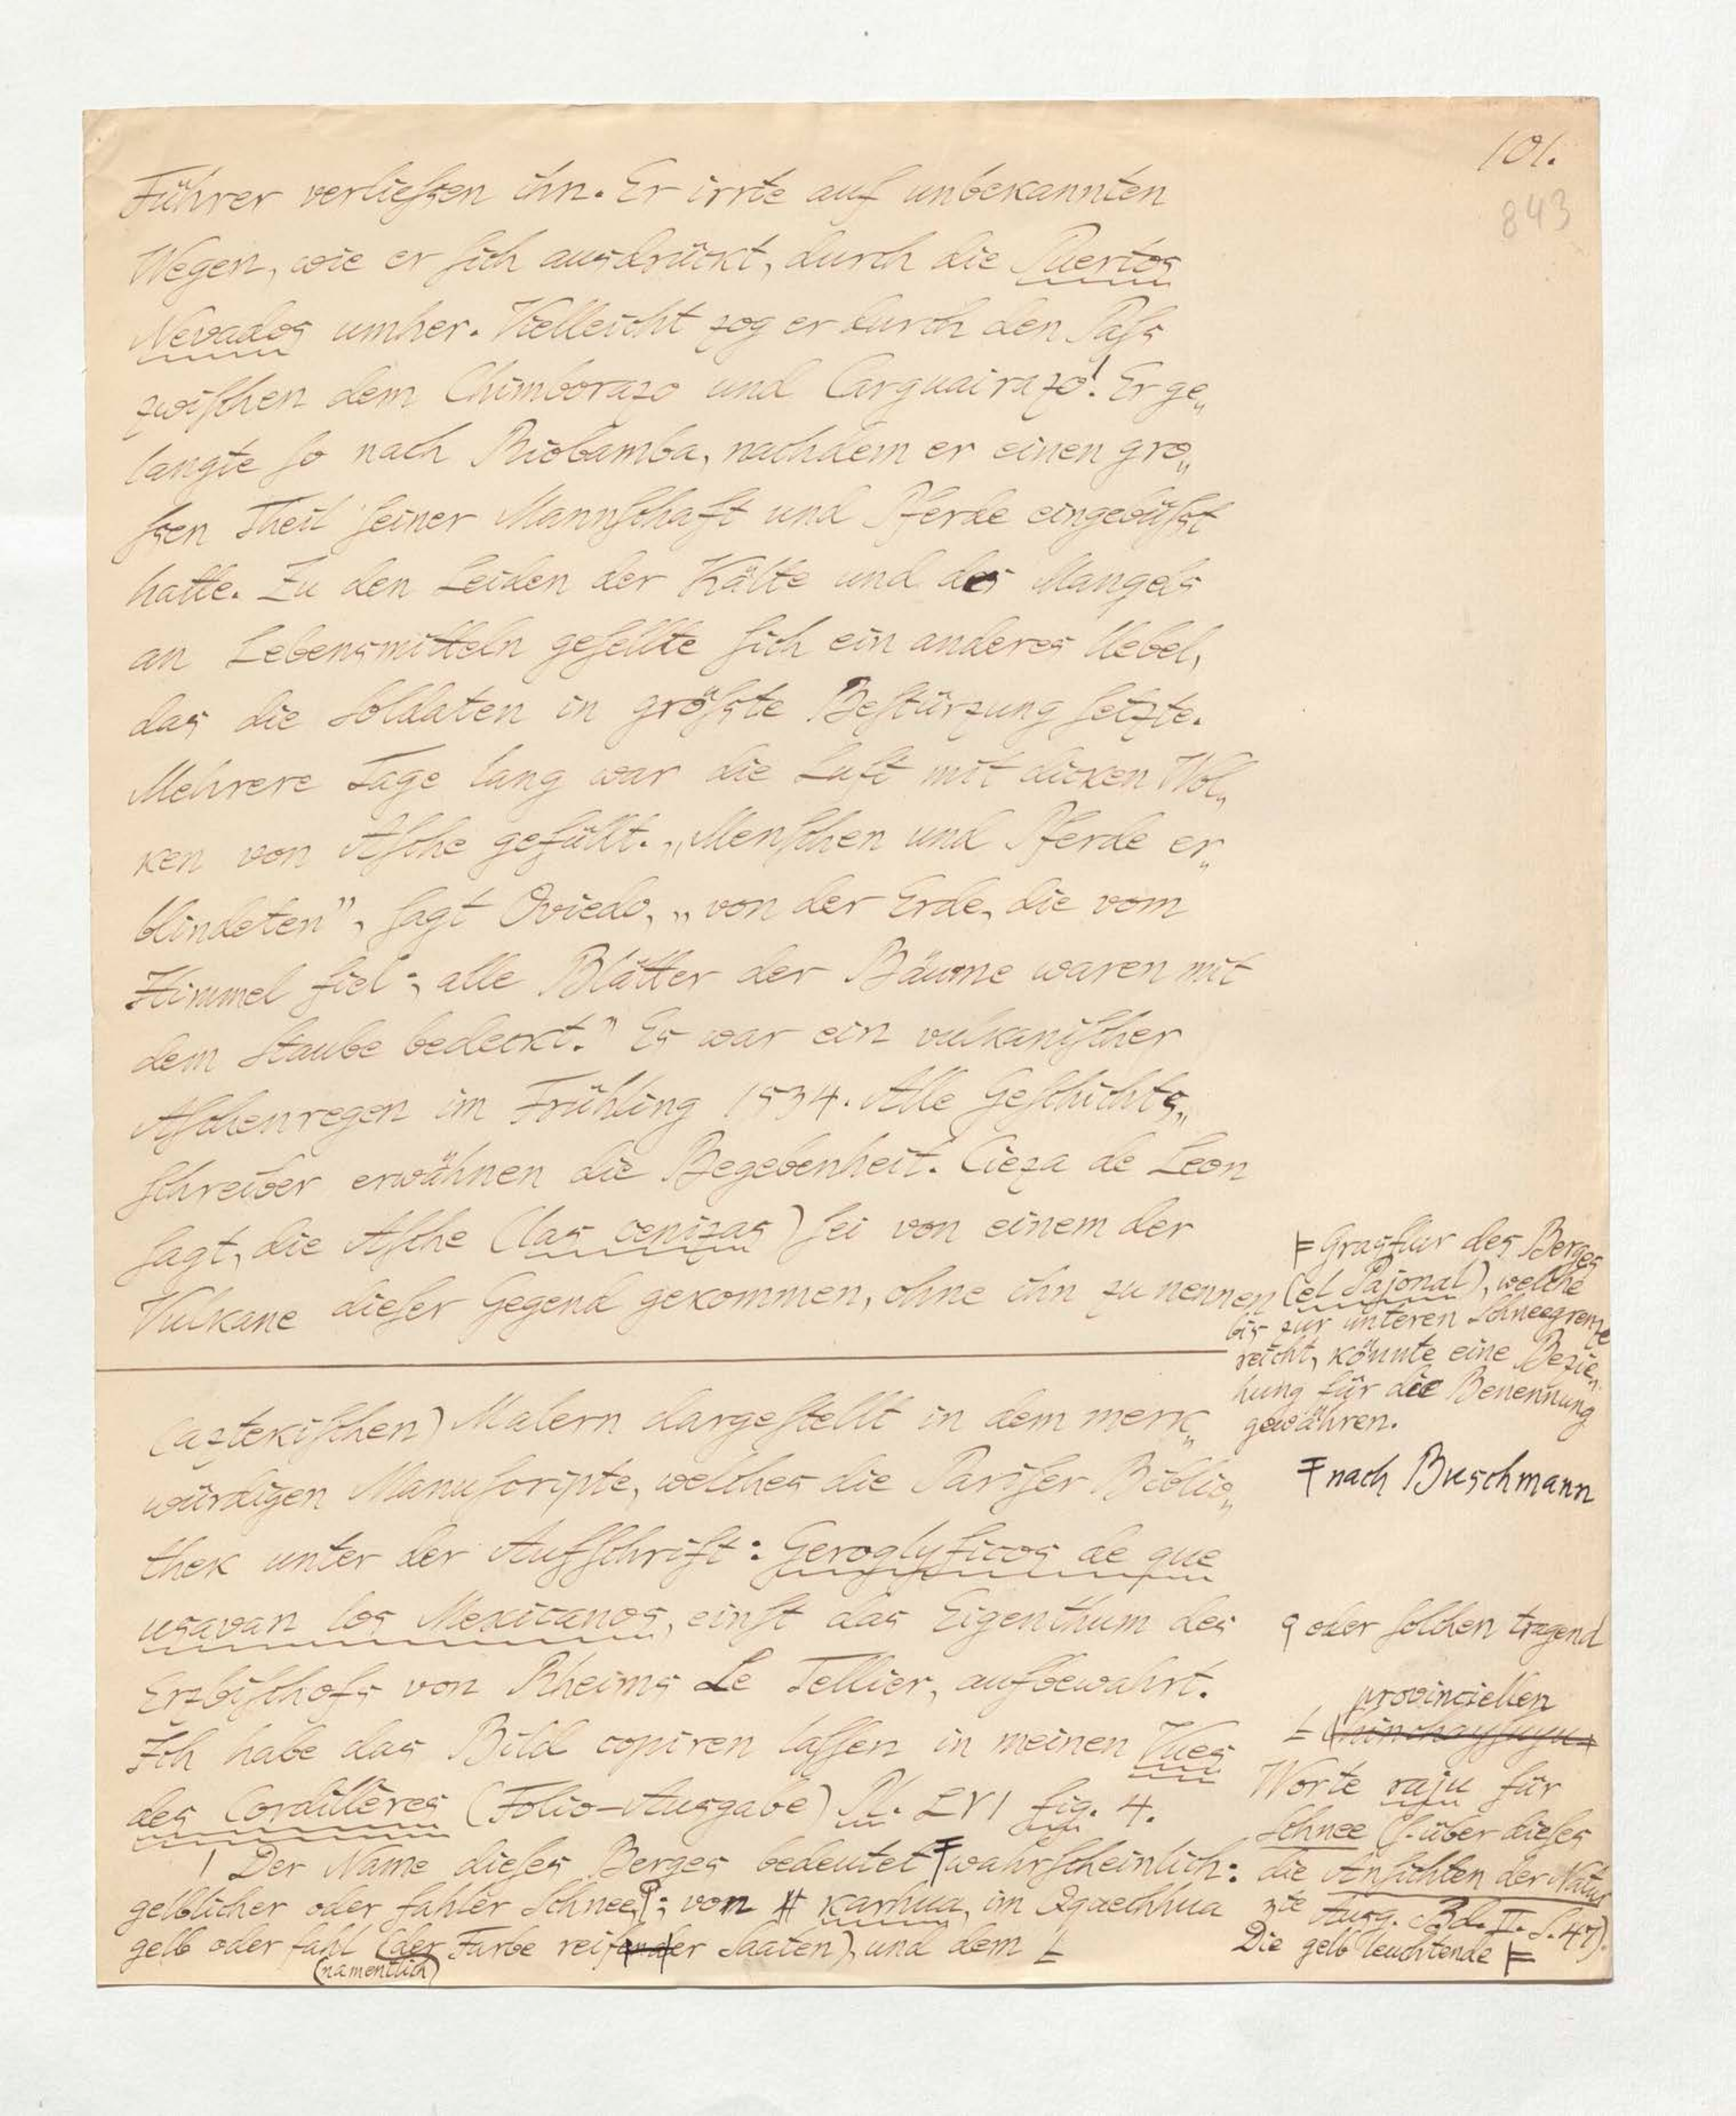 101.
843
Führer verließen ihn. Er irrte auf unbekannten
Wegen, wie er sich ausdrückt, durch die Puertos
Nevados umher. Vielleicht zog er durch den Paß
zwischen dem Chimborazo und Carguairazo! Er ge„
langte so nach Riobamba, nachdem er einen gro„
ßen Theil seiner Mannschaft und Pferde eingebüßt
hatte. Zu den Leiden der Kälte und des Mangels
an Lebensmitteln gesellte sich ein anderes Uebel,
das die Soldaten in größte Bestürzung setzte.
Mehrere Tage lang war die Luft mit dicken Wol„
ken von Asche gefüllt. „Menschen und Pferde er„
blindeten”, sagt Oviedo, „von der Erde, die vom
Himmel fiel; alle Blätter der Bäume waren mit
dem Staube bedeckt.” Es war ein vulkanischer
Aschenregen im Frühling 1534. Alle Geschichts„
schreiber erwähnen die Begebenheit. Cieza de Leon
sagt, die Asche (las cenizas) sei von einem der
Vulkane dieser Gegend gekommen, ohne ihn zu nennen
(aztekischen) Malern dargestellt in dem merk„
würdigen Manuscripte, welches die Pariser Biblio„
thek unter der Aufschrift: Geroglyficos de que
usavan los Mexicanos, einst das Eigenthum des
Erzbischofs von Rheims Le Tellier, aufbewahrt.
Ich habe das Bild copiren lassen in meinen Vues
des Cordillères (Folio-Ausgabe) Pl. LVI fig. 4.
! Der Name dieses Berges bedeutet ⌈wahrscheinlich:
gelblicher oder fahler Schnee⌈; von # karhua, im Qquechhua
gelb oder fahl (der Farbe reifender Saaten), und dem L
(namentlich)
⊧ Grasflur des Berges
(el Pajonal), welche
bis zur unteren Schneegrenze
reicht, könnte eine Bezie„
hung für die Benennung
gewähren.
⌈ nach Buschmann
⌈ oder solchen tragend
provinciellen
L (chinchaysuyu-
Worte raju für
Schnee (s. über dieses
die Ansichten der Natur
3te Ausg. Bd. II. S. 47).
Die gelb leuchtende ⊧